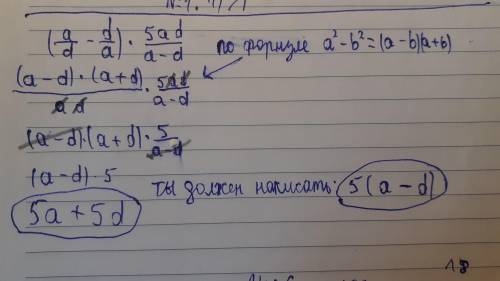 (a/d - d/a) · 5ad/a-d по формуле a²-b²=(a-b)(a+b)
(a-d)·(a+d)/ad · 5ad/a-d
(a-d)·(a+d)·5/a-d
(a-d)·5 ты должен написать: 5(a-d)
5a+5d